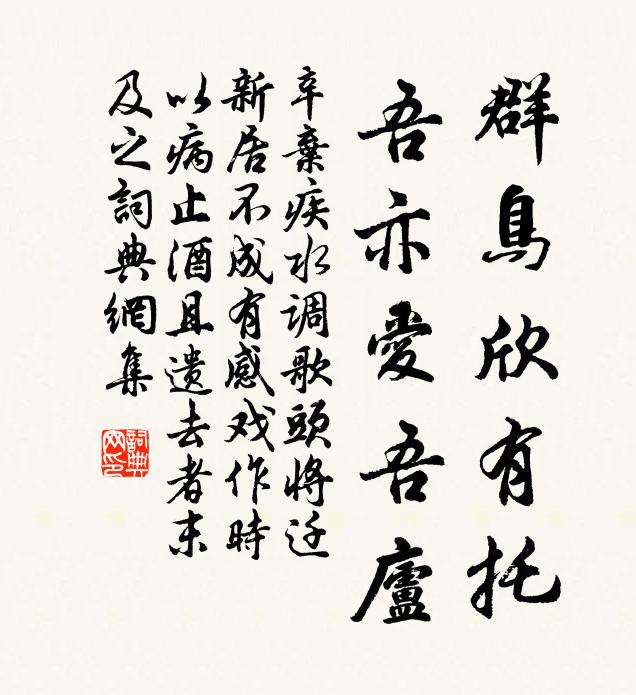 群鳥欣有托
吾亦愛吾廬
辛棄疾水调歌頭將迁
新居不成有感戏作時
以病止酒且遗去者末
及之詞典網集
詞典网印